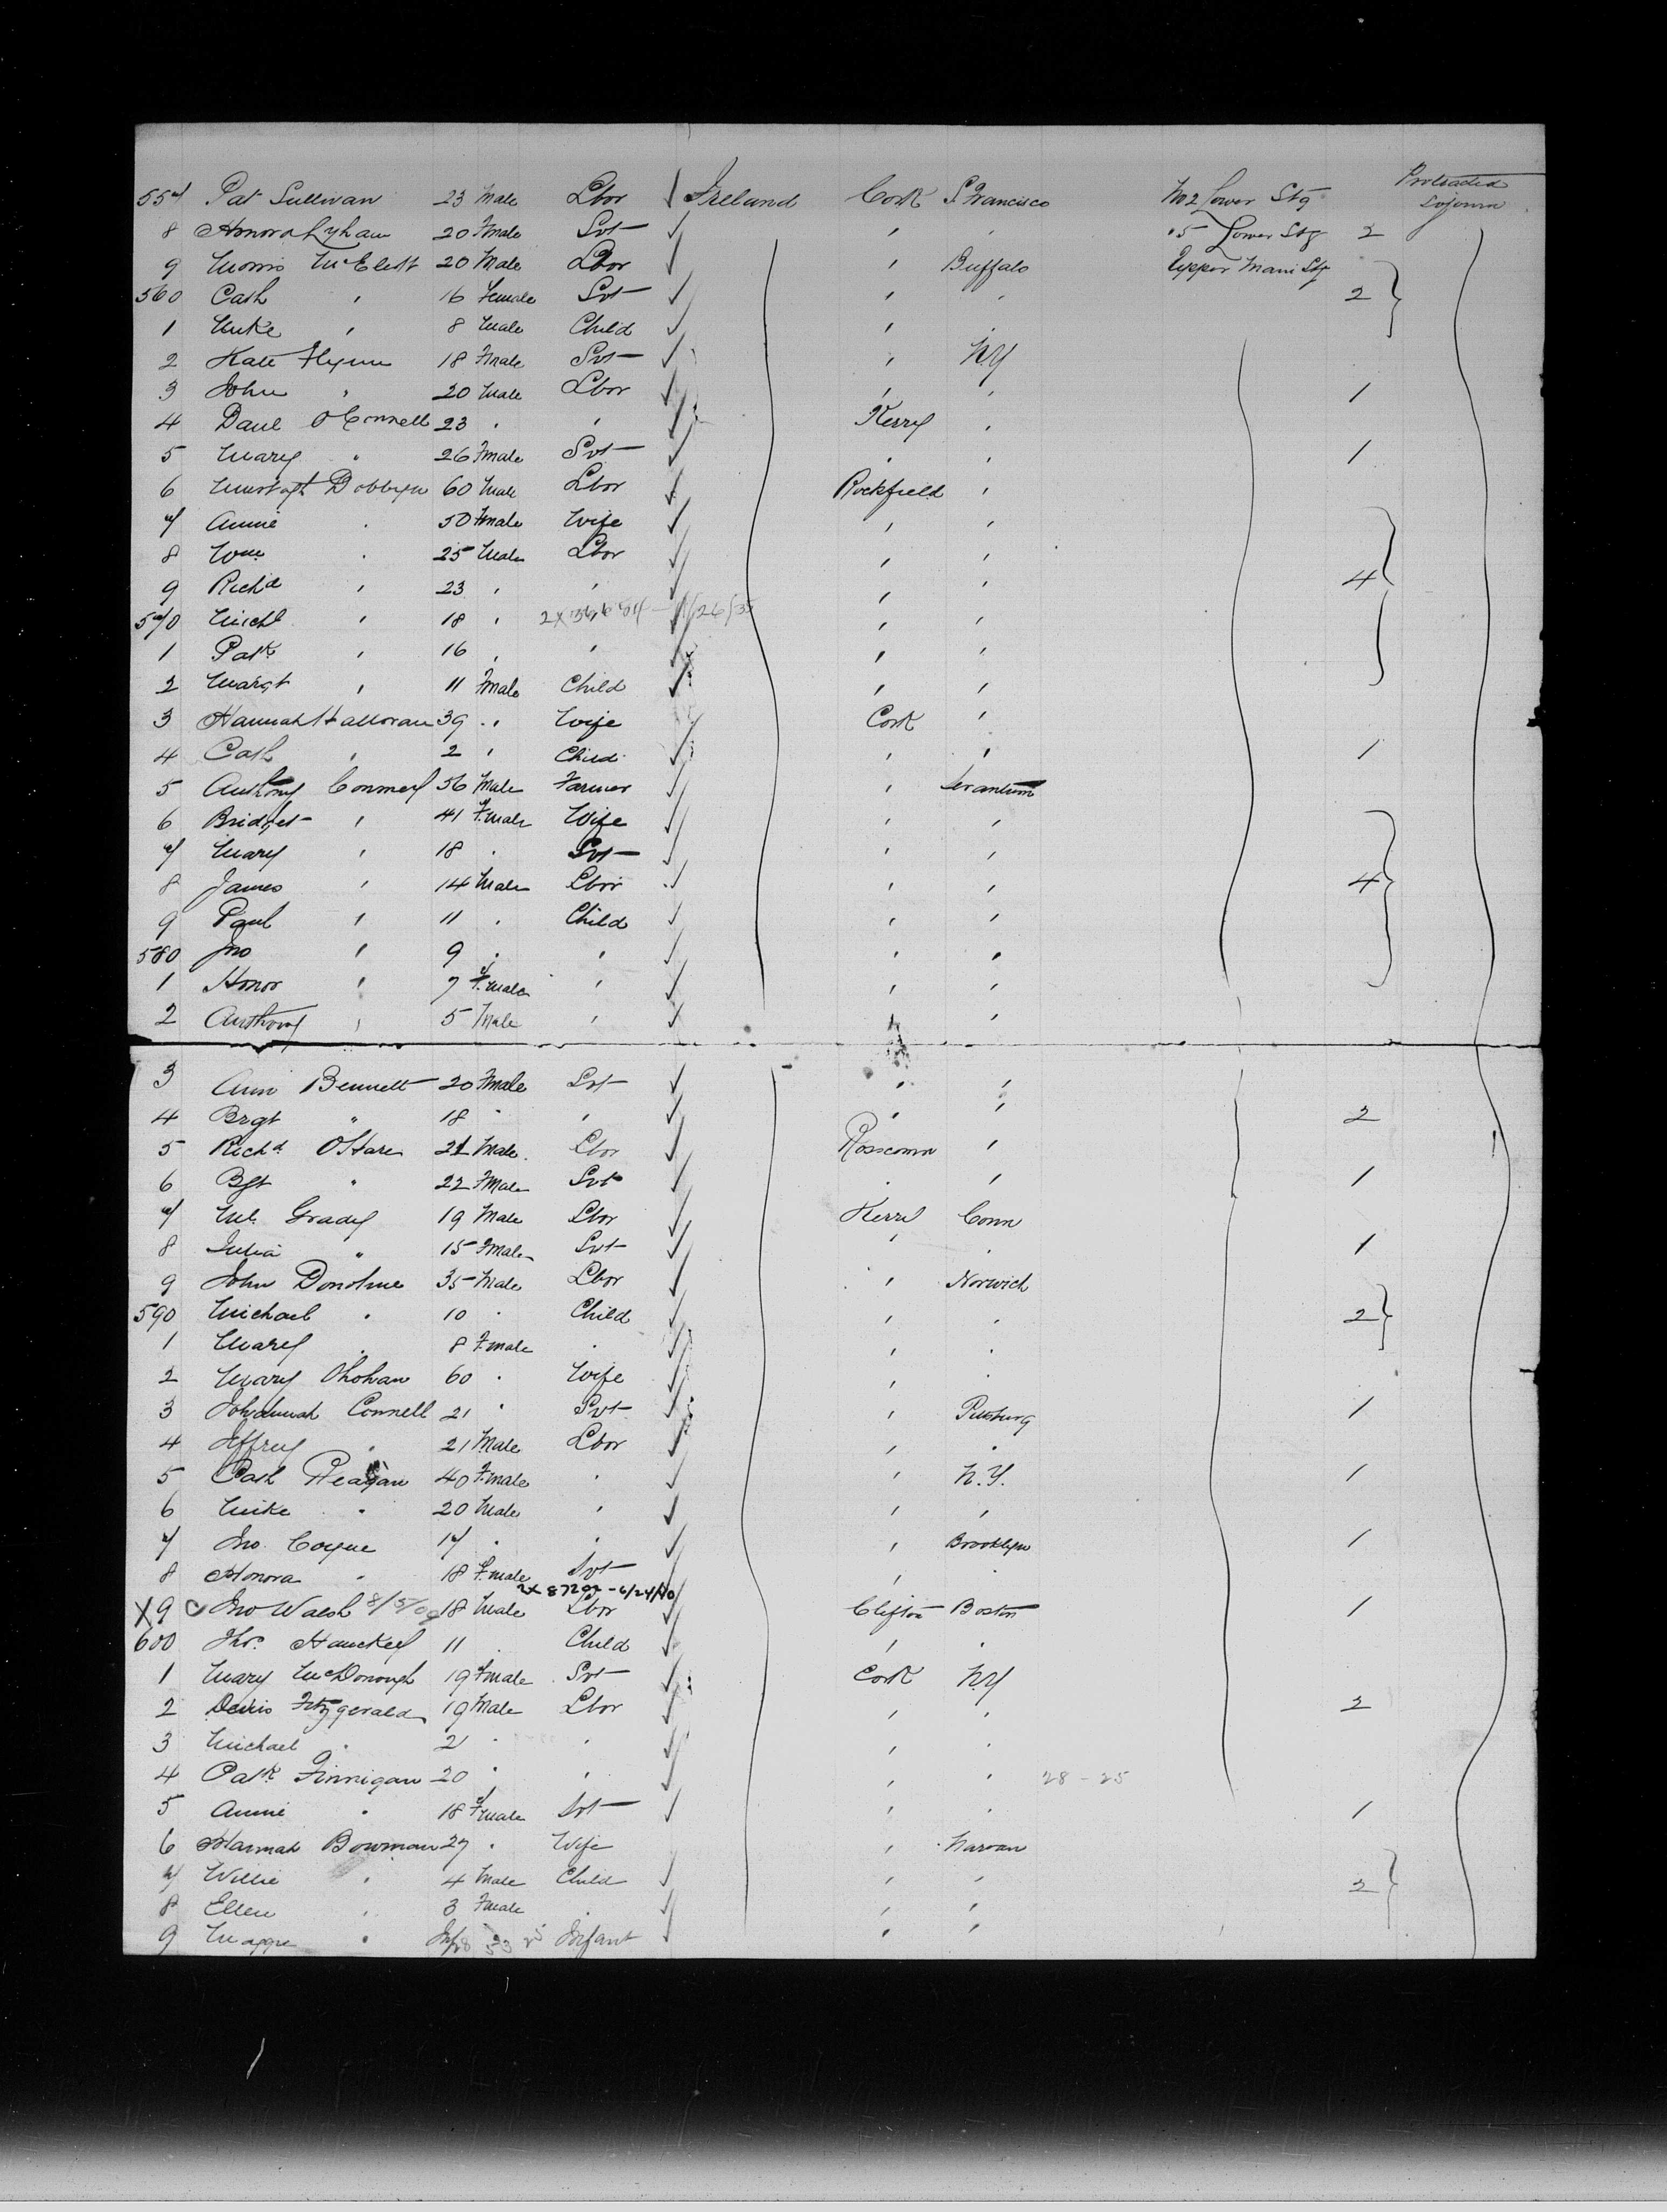 557 Pat Sullivan 23 Male Lbor ✓ Ireland Cork S Francisco No 2 Lower Stg Protracted Sojourn
8 Honora 20 Fmale Svt ✓ ' ' 5 Lower Stg 2
9 Morris McElistt 20 Male Lbor ✓ ' Buffalo Upper Main Stg
560 Cath ' 16 Female Svt ✓ ' ' 2
1 Mike ' 8 Male Child ✓ ' '
2 Kate Flynn 18 Fmale Svt ✓ ' N.Y
3 John ' 20 Male Lbor ✓ ' ' 1
4 Danl O'Connell 23 ' ' ✓ Kerry '
5 Mary ' 26 Fmale Svt ✓ ' ' 1
6 Dobbyn 60 Male Lbor ✓ Rockfield '
7 Annie ' 50 Fmale Wife ✓ ' '
8 Wm ' 25 Male Lbor ✓ ' '
9 Richd ' 23 ' ' ✓ ' ' 4
570 Michl ' 18 ' ✓ ' '
1 Patk ' 16 ' ' ✓ ' '
2 Margt ' 11 Fmale Child ✓ ' '
3 Hannah Halloran 39 ' Wife Cork '
4 Cath ' 2 ' Child ✓ ' ' 1
5 Anthony Conmey 56 Male Farmer ✓ '
6 Bridget ' 41 Fmale Wife ✓ ' '
7 Mary ' 18 ' Svt ✓ ' '
8 James ' 14 Male Lbor ✓ ' ' 4
9 Paul ' 11 ' Child ✓ ' '
580 Jno ' 9 ' ' ✓ ' '
1 Honor ' 7 Fmale ' ✓ ' '
2 Anthony ' 5 Male ' ✓ '
3 Ann Bennett 20 Fmale Svt ✓ ' '
4 Brgt " 18 ' ' ✓ ' ' 2
5 Richd O'Hare 21 Male Lbor ✓ Roscomn '
6 Bgt " 22 Fmale Svt ✓ ' ' 1
7 Ml Grady 19 Male Lbor ✓ Kerry Conn
8 Julia " 15 Fmale Svt ✓ ' ' 1
9 John Donohue 35 Male Lbor ✓ ' Norwich
590 Michael ' 10 ' Child ✓ ' ' 2
1 Mary ' 8 Fmale ' ✓ ' '
2 Mary 60 ' Wife ✓ ' '
3 Johannah Connell 21 ' Svt ✓ ' Pittsburg 1
4 Jeffrey ' 21 Male Lbor ✓ ' '
5 Cath Reagan 40 Fmale ' ✓ ' N.Y. 1
6 Mike ' 20 Male ' ✓ ' '
7 Jno Coyne 17 ' ' ✓ ' Brooklyn 1
8 Honora ' 18 Fmale Svt ✓ ' '
2x 87292 - 6/24/40
X 9 C Jno Walsh 8/5/09 18 Male Lbor ✓ Clifton Boston 1
600 Thos 11 ' Child ✓ ' '
1 Mary McDonough 19 Fmale Svt ✓ Cork N.Y
2 Denis Fitzgerald 19 Male Lbor ✓ ' ' 2
3 Michael ' 21 ' ' ✓ ' '
4 Patk Finnigan 20 ' ' ✓ ' ' 28 - 25
5 Annie ' 18 Fmale Svt ✓ ' ' 1
6 Hannah Bowman 27 ' Wife '
7 Willie ' 4 Male Child ✓ ' ' 2
8 Ellen ' 3 Fmale ' ✓ ' '
9 Maggie ' Inf Infant ✓ '